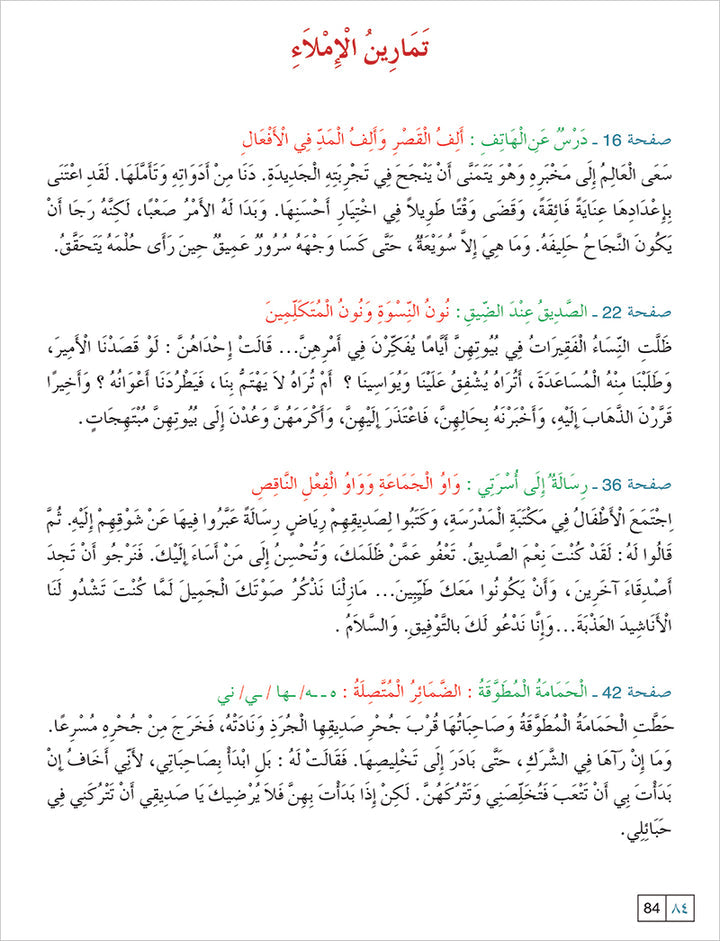 تَمَارِينُ الْإِمْلَاءِ
صفحة 16 ـ دَرْسٌ عَنِ الْهَاتِفِ : أَلِفُ الْقَصْرِ وَأَلِفُ الْمَدِّ فِي الْأَفْعَالِ
سَعَى الْعَالِمُ إِلَى مَخْبَرِهِ وَهْوَ يَتَمَنَّى أَنْ يَنْجَحَ فِي تَجْرِبَتِهِ الْجَدِيدَةِ. دَنَا مِنْ أَدَوَاتِهِ وَتَأَمَّلَهَا. لَقَدِ اعْتَنَى
بِإِعْدَادِهَا عِنَايَةً فَائِقَةً، وَقَضَى وَقْتًا طَوِيلاً فِي اخْتِيَارِ أَحْسَنِهَا. وَبَدَا لَهُ الْأَمْرُ صَعْبًا، لَكِنَّهُ رَجَا أَنْ
يَكُونَ النَّجَاحُ حَلِيفَهُ. وَمَا هِيَ إِلاَّ سُوَيْعَةٌ، حَتَّى كَسَا وَجْهَهُ سُرُورٌ عَمِيقٌ حِينَ رَأَى حُلْمَهُ يَتَحَقَّقُ.
صفحة 22 ـ الصَّدِيقُ عِنْدَ الضِّيقِ : نُونُ النِّسْوَةِ وَنُونُ الْمُتَكَلِّمِينَ
ظَلَّتِ النِّسَاءُ الْفَقِيرَاتُ فِي بُيُوتِهِنَّ أَيَّامًا يُفَكِّرْنَ فِي أَمْرِهِنَّ... قَالَتْ إِحْدَاهُنَّ : لَوْ قَصَدْنَا الْأَمِيرَ،
وَطَلَبْنَا مِنْهُ الْمُسَاعَدَةَ، أَتُرَاهُ يُشْفِقُ عَلَيْنَا وَيُوَاسِينَا ؟ أَمْ تُرَاهُ لاَ يَهْتَمُّ بِنَا، فَيَطْرُدَنَا أَعْوَانُهُ ؟ وَأَخِيرًا
قَرَّرْنَ الذَّهَابَ إِلَيْهِ، وَأَخْبَرْنَهُ بِحَالِهِنَّ، فَاعْتَذَرَ إِلَيْهِنَّ، وَأَكْرَمَهُنَّ وَعُدْنَ إِلَى بُيُوتِهِنَّ مُبْتَهِجَاتٍ.
صفحة 36 ـ رِسَالَةٌ إِلَى أُسْرَتِي : وَاوُ الْجَمَاعَةِ وَوَاوُ الْفِعْلِ النَّاقِصِ
اِجْتَمَعَ الْأَطْفَالُ فِي مَكْتَبَةِ الْمَدْرَسَةِ، وَكَتَبُوا لِصَدِيقِهِمْ رِيَاضٍ رِسَالَةً عَبَّرُوا فِيهَا عَنْ شَوْقِهِمْ إِلَيْهِ. ثُمَّ
قَالُوا لَهُ : لَقَدْ كُنْتَ نِعْمَ الصَّدِيقُ. تَعْفُو عَمَّنْ ظَلَمَكَ، وَتُحْسِنُ إِلَى مَنْ أَسَاءَ إِلَيْكَ. فَنَرْجُو أَنْ تَجِدَ
أَصْدِقَاءَ آخَرِينَ، وَأَنْ يَكُونُوا مَعَكَ طَيِّبِينَ... مَازِلْنَا نَذْكُرُ صَوْتَكَ الْجَمِيلَ لَمَّا كُنْتَ تَشْدُو لَنَا
الْأَنَاشِيدَ الْعَذْبَةَ...وَإِنَّا نَدْعُو لَكَ بالتَّوْفِيقِ. وَالسَّلاَمُ .
صفحة 42 ـ الْحَمَامَةُ الْمُطَوَّقَةُ : الضَّمَائِرُ الْمُتَّصِلَةُ : ه ـ ـه/ ـها /ـي/ ني
حَطَّتِ الْحَمَامَةُ الْمُطَوَّقَةُ وَصَاحِبَاتُهَا قُرْبَ جُحْرِ صَدِيقِهَا الْجُرَذِ وَنَادَتْهُ، فَخَرَجَ مِنْ جُحْرِهِ مُسْرِعًا.
وَمَا إِنْ رَآهَا فِي الشَّرَكِ، حَتَّى بَادَرَ إِلَى تَخْلِيصِهَا. فَقَالَتْ لَهُ : بَلِ ابْدَأْ بِصَاحِبَاتِي، لأَنِّي أَخَافُ إِنْ
بَدَأْتَ بِي أَنْ تَتْعَبَ فَتُخَلِّصَنِي وَتَتْرُكَهُنَّ . لَكِنْ إِذَا بَدَأْتَ بِهِنَّ فَلاَ يُرْضِيكَ يَا صَدِيقِي أَنْ تَتْرُكَنِي فِي
حَبَائِلِي.
84 ٨٤